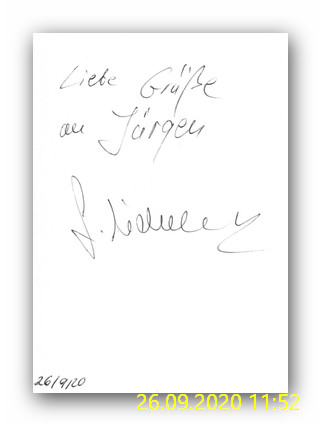 Liebe Grüße
an Jürgen
26/9/20
26.09.2020 11:52